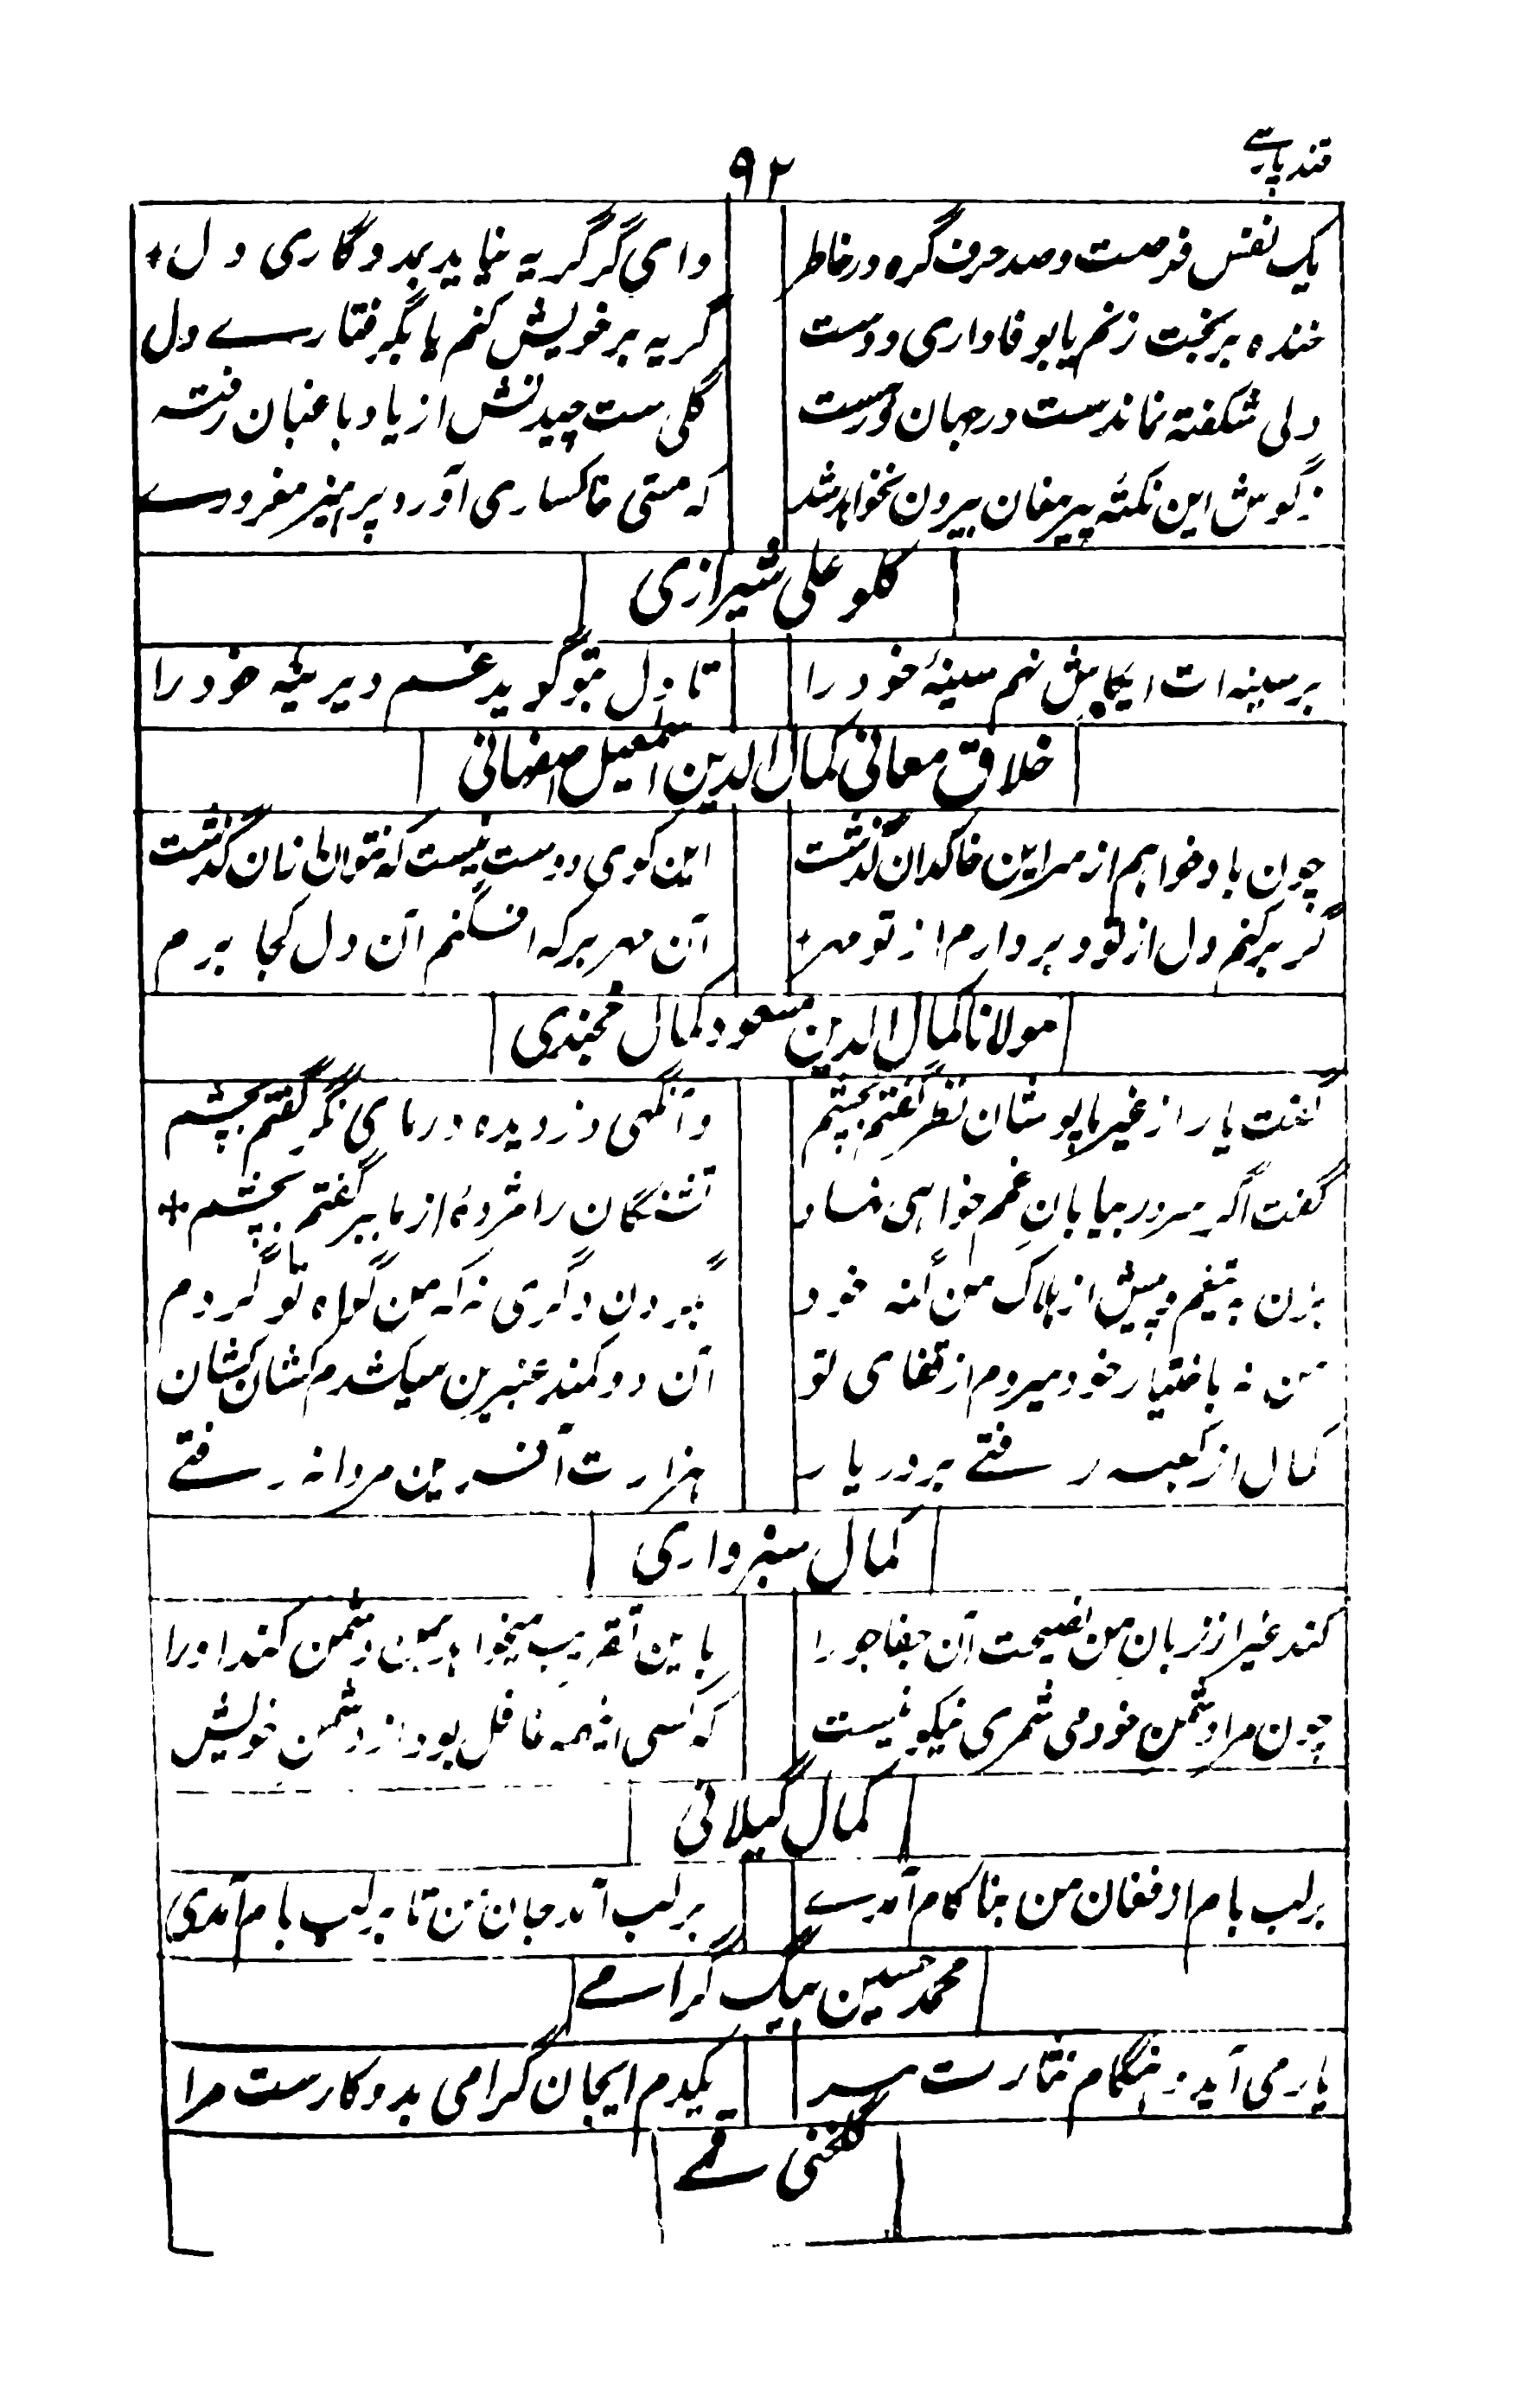 قند پارسے
۹۲
یک نفس فرصت و صد حرف گره در خاطر
وای گر گریه نیاید بمددگاری دل
خنده بر بخت زنم یا بوفاداری دوست
گریه بر خویش کنم یا بگرفتارے دل
دلی شگفته نماندست در جهان
گلی ست چیدنش از یاد باغبان رفته
ز گوش این نکتهٔ پیر مغان بیرون نخواهد شد
که مستی خاکساری آورد پرهیز مغرورے
کلو علی شیرازی
بر سینه ات ایکاش نهم سینهٔ خود را
تا دل بتو گوید غم دیرینهٔ خود را
خلاق معانی کمال الدین اسمعیل اصفهانی
چون باد خواهم از سر این خاکدان گذشت
این کوی دوست نیست که نتوان ازان گذشت
گر برکنم دل از تو و بردارم از تو مهر
آن مهر بر که افگنم آن دل کجا برم
مولانا کمال الدین مسعود کمال خجندی
گفت یار از غیر ما پوشان نظر گفتم بچشم
وآنگهی دزدیده در ما می نگر گفتم بچشم
گفت اگر سر در بیابان غم خواهی نهاد
تشنگان را مژدهٔ از ما ببر گفتم بچشم
بزن به تیغم و پیش از هلاک من گنه خود
بگردن دگری نه که من گواه تو گردم
من نه باختیار خود میروم از قفای تو
آن دو کمند عنبرین میکشدم کشان کشان
کمال از کعبه رفتے بر در یار
هزارت آفرین مردانه رفتے
کمال سبزواری
کند غیر از زبان من نصیحت آن جفاجو را
باین تقریب میخواهد بمن دشمن کند او را
چون مرا دشمن خود می شمری نیکو نیست
که کسی اینهمه غافل بود از دشمن خویش
کمال گیلانی
بر لب بام از فغان من بناکام آمدے
بر لب آمد جان من تا بر لب بام آمدی
محمد حسین بیگ گرامے
یار می آید و هنگام نثارست
یکدم ایجان گرامی بدو کارست مرا
گلخنی قمے